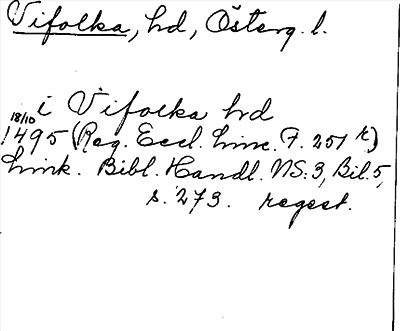 Vifolka, hd, Österg. l.
i Vifolka hd
18/10
1495 (Reg. Eccl. Linc. F. 251 r)
Link. Bibl. Handl. NS:3, Bil.5,
s. 273. regest.